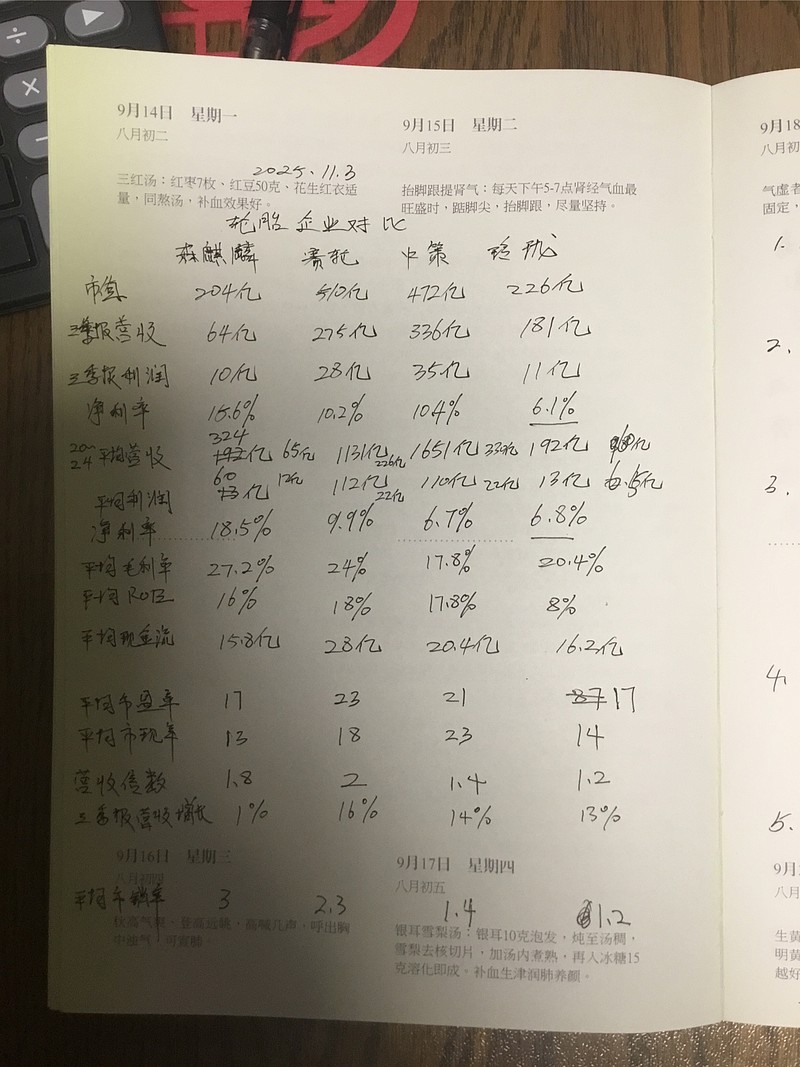 ÷
×
9月14日 星期一
八月初二
9月15日 星期二
八月初三
三红汤：红枣7枚、红豆50克、花生红衣适
量，同熬汤，补血效果好。
抬脚跟提肾气：每天下午5-7点肾经气血最
旺盛时，踮脚尖，抬脚跟，尽量坚持。
2025.11.3
轮胎企业对比
森麒麟 赛轮 中策 玲珑
市值 204亿 510亿 472亿 226亿
三季报营收 64亿 275亿 336亿 181亿
三季报利润 10亿 28亿 35亿 11亿
净利率 15.6% 10.2% 10.4% 6.1%
324
20~24 平均营收 192亿 65亿 1131亿 226亿 1651亿 330亿 192亿
60
平均利润 43亿 12亿 112亿 22亿 110亿 22亿 13亿
净利率 18.5% 9.9% 6.7% 6.8%
平均毛利率 27.2% 24% 17.8% 20.4%
平均ROE 16% 18% 17.8% 8%
平均现金流 15.8亿 28亿 20.4亿 16.2亿
平均市盈率 17 23 21 87 17
平均市现率 13 18 23 14
营收倍数 1.8 2 1.4 1.2
三季报营收增长 1% 16% 14% 13%
9月16日 星期三
八月初四
9月17日 星期四
八月初五
平均市销率 3 2.3 1.4 1.2
秋高气爽、登高远眺，高喊几声，呼出胸
中浊气，可宣肺。
银耳雪梨汤：银耳10克泡发，炖至汤稠，
雪梨去核切片，加汤内煮熟，再入冰糖15
克溶化即成。补血生津润肺养颜。
9月18
八月初
气虚者
固定，
1.
2.
3.
4.
5.
八月
生黄
明黄
越好